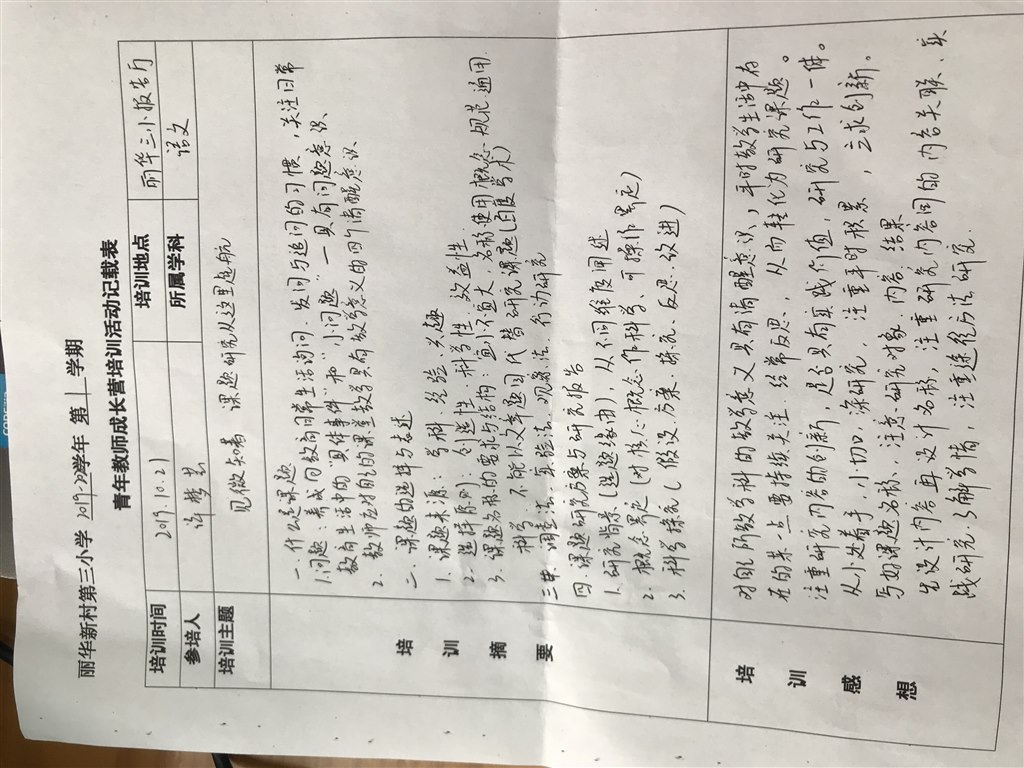 丽华新村第三小学 2019-2020学年 第 1 学期
青年教师成长营培训活动记载表
培训时间 2019.10.21 培训地点 丽华三小报告厅
参培人 许 所属学科 语文
培训主题 见微知著 课题研究从这里起航
培训摘要
一、什么是课题
1.问题:养成向教育日常生活询问、发问与追问的习惯,关注日常
教育生活中的“具体事件”和“小问题”—具有问题意识
2. 教师应对自己的课堂教学具有教学意义的清醒意识
二、课题的选择与表述
1. 课题来源:学科、经验、兴趣
2. 选择原则:创造性、科学性、效益性
3. 课题名称的要求与结构:宜小不宜大,名称使用概念规范通用
科学 不能以文章题目代替研究课题(白皮书术)
三、调查法、实验法、观察法、行动研究
四、课题研究方案与研究报告
1. 研究背景(选题缘由),从不同维度阐述
2. 概念界定(对核心概念作科学、可操作界定)
3. 科学探究(假设、方案、探究、反思、改进)
培训感想
对自己所教学科的教学意义具有清醒意识,平时教学生活中存
在的某一点要持续关注、经常反思,从而转化为研究课题。
注重研究内容的创新,是否具有实践价值,研究与工作一体。
从小处着手,小切口,深研究,注重平时积累,立求创新。
写好课题名称,注意研究对象、内容、结果
出设计内容再设计名称,注重研究内容间的内容关联、实
践研究,了解学情,注重途径方法研究.